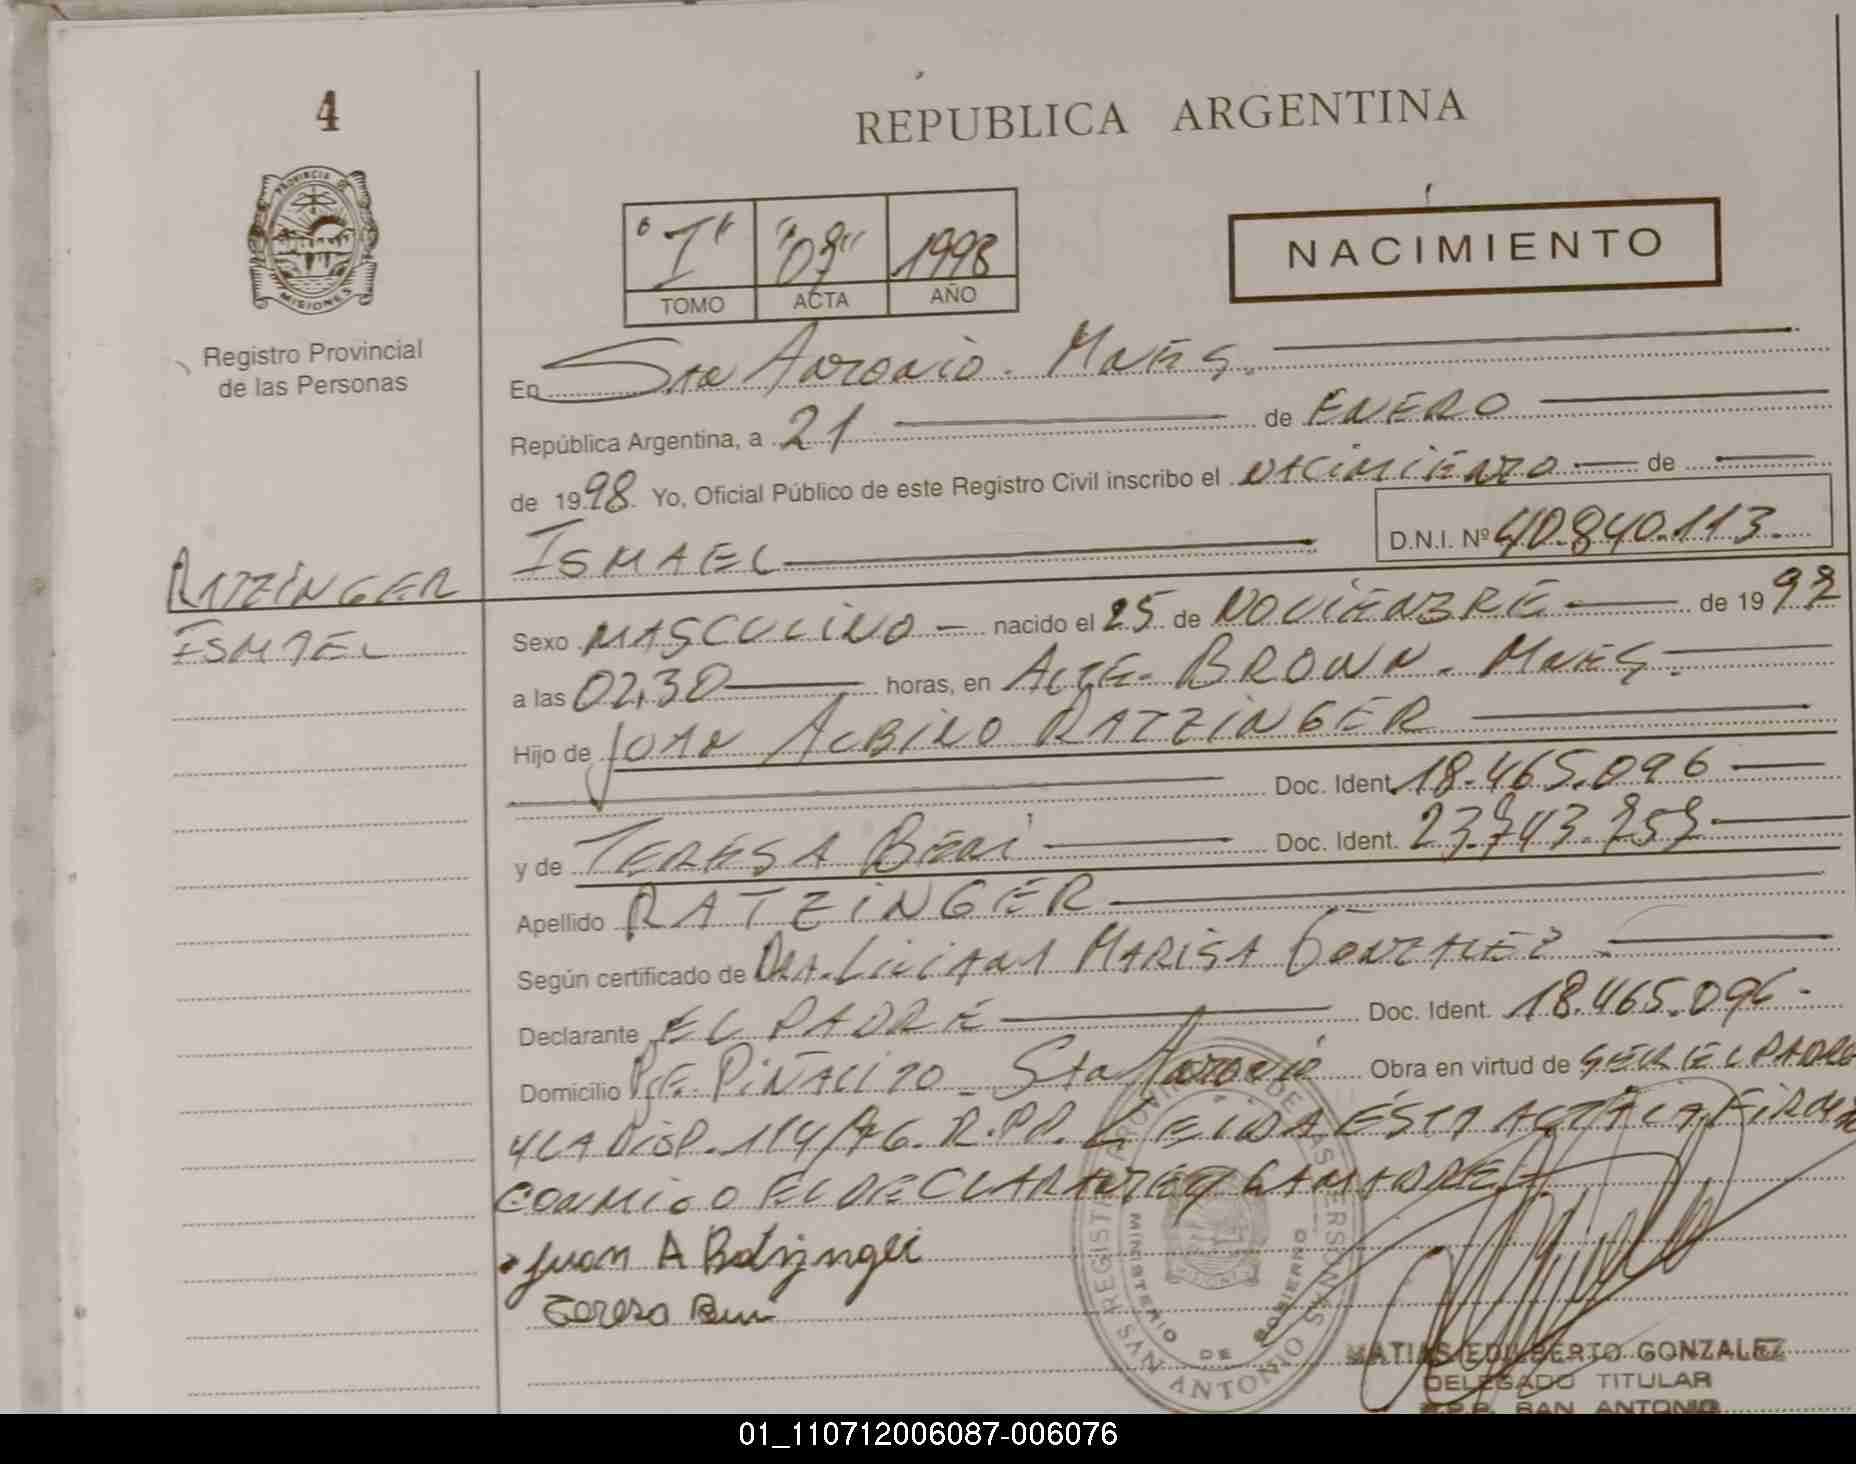 4
REPUBLICA ARGENTINA
PROVINCIA DE
MISIONES
Registro Provincial
de las Personas
"I" "07" 1998
TOMO ACTA AÑO
NACIMIENTO
En San Antonio. Mnes.
República Argentina, a 21 de ENERO
de 1998 Yo, Oficial Público de este Registro Civil inscribo el NACIMIENTO de
ISMAEL
D.N.I. Nº 40.840.113.
RATZINGER
ISMAEL
Sexo MASCULINO nacido el 25 de NOVIEMBRE de 1997
a las 02,30 horas, en ALTE. BROWN. Mnes.
Hijo de JUAN ALBINO RATZINGER
Doc. Ident. 18.465.096
y de TERESA BENI Doc. Ident. 23.743.757
Apellido RATZINGER
Según certificado de DRA. LILIANA MARISA GONZALEZ
Declarante EL PADRE Doc. Ident. 18.465.096
Domicilio PJE. PIÑALITO - Sto Antonio Obra en virtud de SER EL PADRE
Y LA DISP. 114/76. R.PP. LEIDA ESTA ACTA LA FIRMAN
CONMIGO EL DECLARANTE Y LA MADRE
Juan A Ratzinger
Teresa
REGISTRO PROVINCIAL DE LAS PERSONAS
MINISTERIO DE GOBIERNO
SAN ANTONIO
MATIAS EDILBERTO GONZALEZ
DELEGADO TITULAR
R.P.P. SAN ANTONIO
01_110712006087-006076